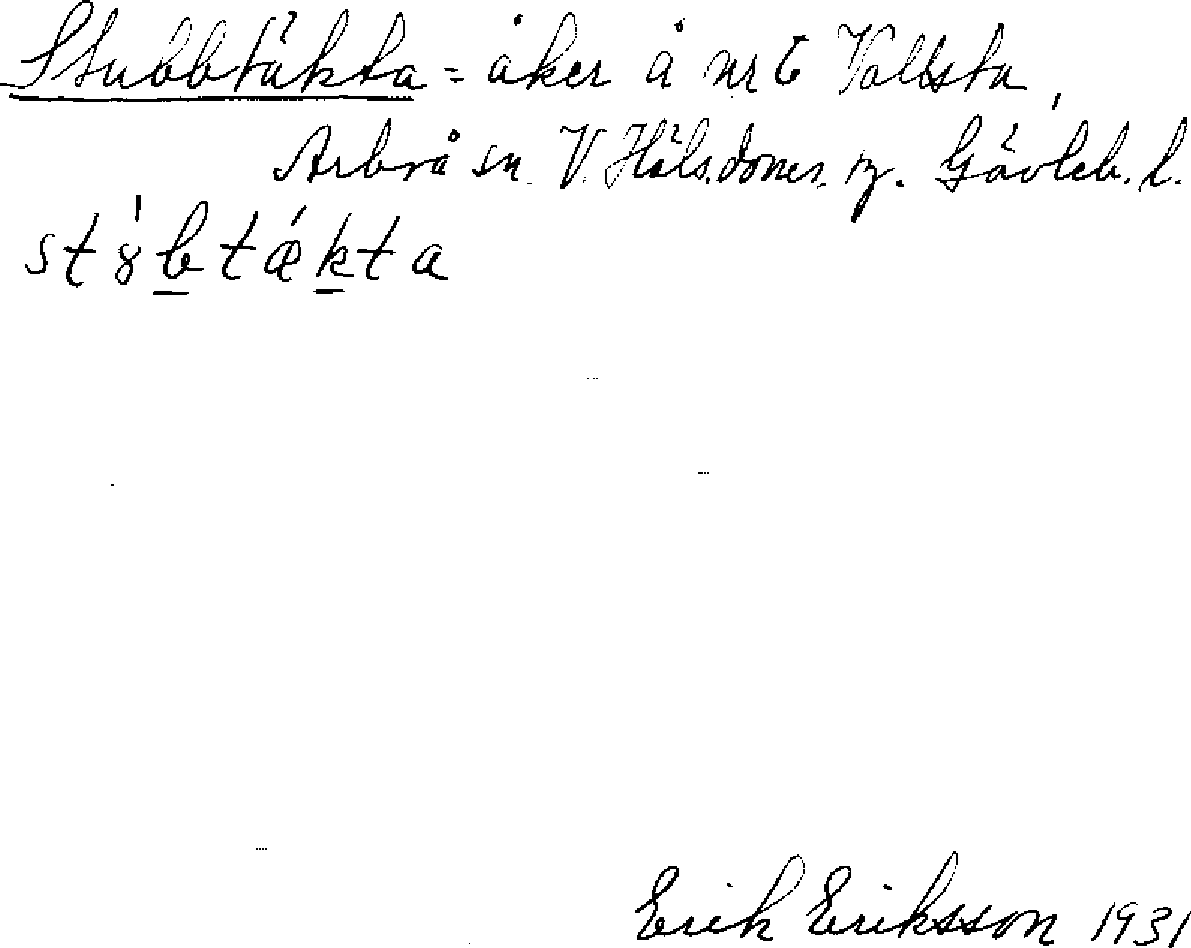 Stubbtäkta = åker å nr 6 Vallsta,
Arbrå sn. V. Häls. domes. Gävleb. l.
st8́btǽkta
Erik Eriksson 1931